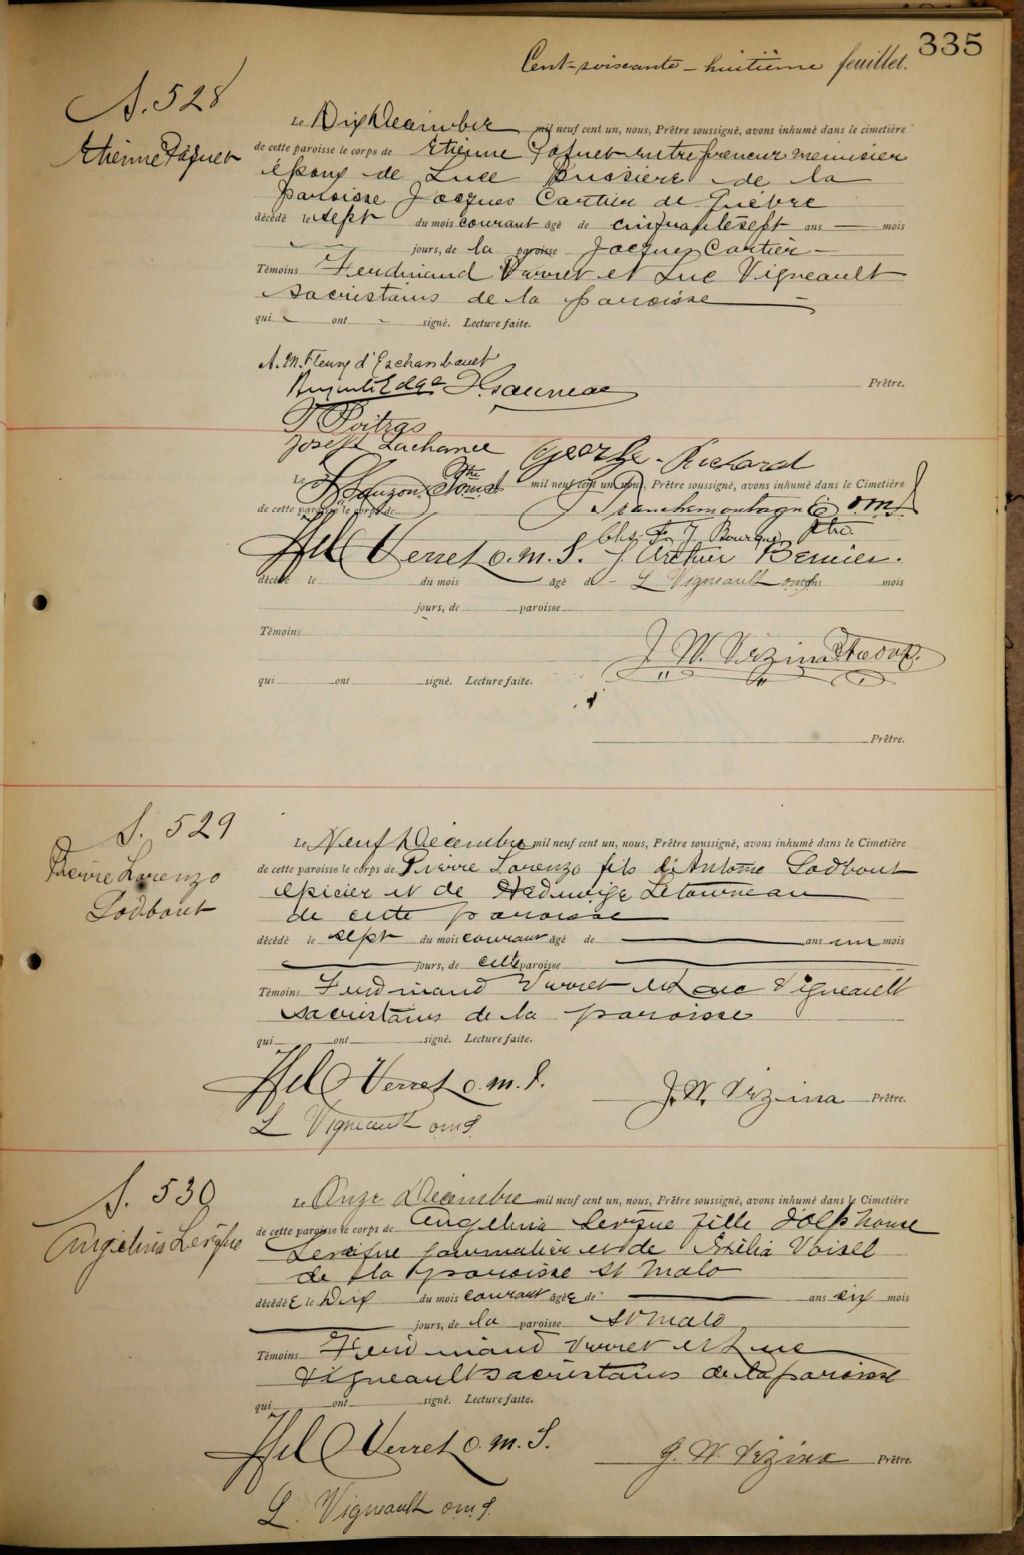 335
Cent-soixante-huitième feuillet.
S. 528
Etienne Paquet
Le Dix Décembre mil neuf cent un, nous, Prêtre soussigné, avons inhumé dans le cimetière
de cette paroisse le corps de Etienne Paquet entrepreneur menuisier
époux de Luce Bussière de la
paroisse Jacques Cartier de Québec
décédé le sept du mois courant âgé de cinquante sept ans — mois
jours, de la paroisse Jacques Cartier
Témoins Ferdinand Verret et Luc Vigneault
sacristains de la paroisse
qui ont signé. Lecture faite.
A. M. Fleury d'Eschambault
Auguste Edge
Prêtre.
P Poitras
Joseph Lachance George Richard
Le mil neuf cent un, nous, Prêtre soussigné, avons inhumé dans le Cimetière
de cette paroisse le corps de
Verret o.m.S. J. Arthur Bernier.
décédé le du mois âgé de L Vigneault oms ans mois
jours, de paroisse
Témoins
J. W. Vézina
qui ont signé. Lecture faite.
Prêtre.
S. 529
Pierre Lorenzo
Godbout
Le Neuf Décembre mil neuf cent un, nous, Prêtre soussigné, avons inhumé dans le Cimetière
de cette paroisse le corps de Pierre Lorenzo fils d'Antonio Godbout
épicier et de Hedwige Letourneau
de cette paroisse
décédé le sept du mois courant âgé de — ans un mois
jours, de cette paroisse
Témoins Ferdinand Verret et Luc Vigneault
sacristains de la paroisse
qui ont signé. Lecture faite.
Verret o.m.S.
J. W. Vézina Prêtre.
L Vigneault oms.
S. 530
Angelina Levêque
Le Onze Décembre mil neuf cent un, nous, Prêtre soussigné, avons inhumé dans le Cimetière
de cette paroisse le corps de Angelina Levêque fille d'Olphonse
Levêque journalier et de Exélia Voisel
de la paroisse St Malo
décédéE le Dix du mois courant âgéE de — ans six mois
jours, de la paroisse St Malo
Témoins Ferdinand Verret et Luc
Vigneault sacristains de la paroisse
qui ont signé. Lecture faite.
Verret o.m.S.
J. W. Vézina Prêtre.
L. Vigneault oms.